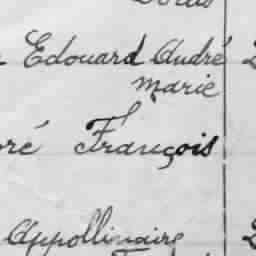 Edouard André
Marie
ré François
Appollinaire